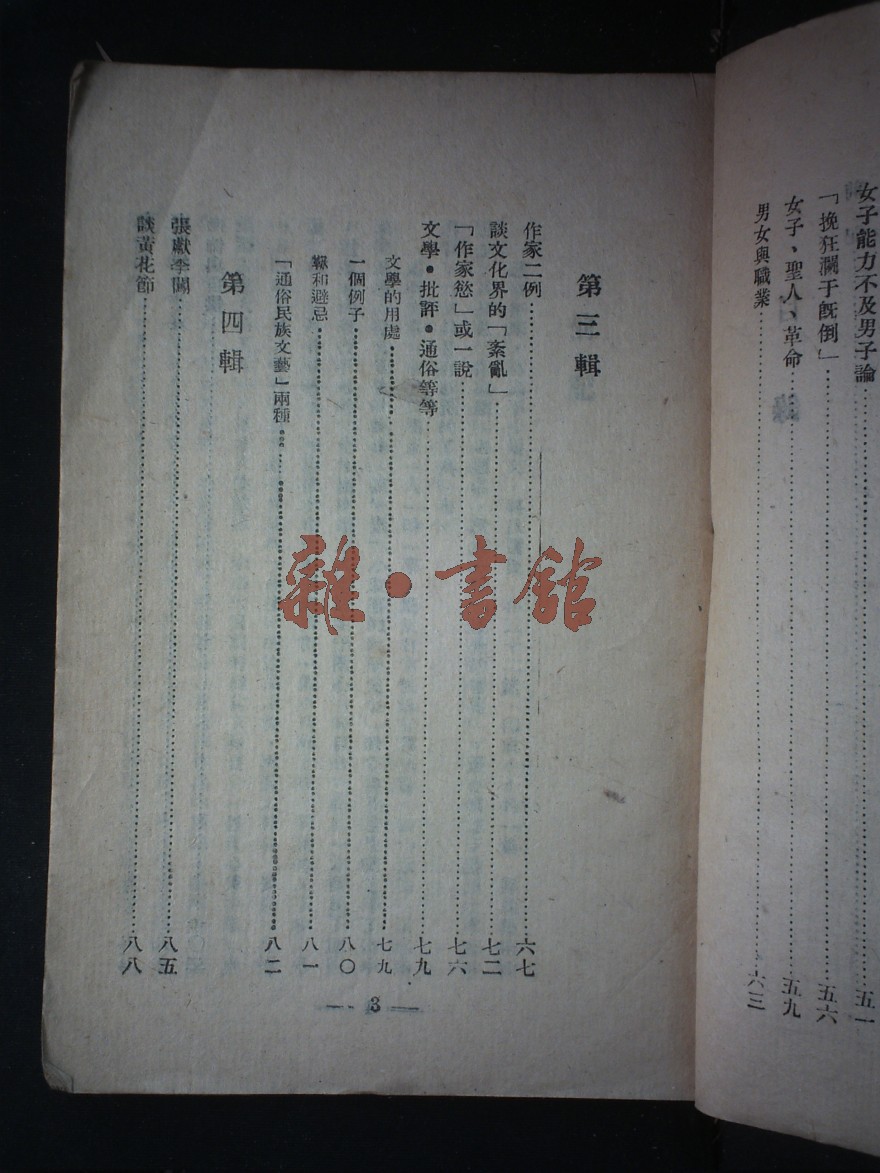 女子能力不及男子論……五一
「挽狂瀾于旣倒」……五六
女子、聖人、革命……五九
男女與職業……六三
第三輯
作家二例……六七
談文化界的「紊亂」……七二
「作家慾」或一說……七六
文學•批評•通俗等等……七九
文學的用處……七九
一個例子……八〇
和避忌……八一
「通俗民族文藝」兩種……八二
第四輯
張獻李闖……八五
談黃花節……八八
— 3 —
雜•書館